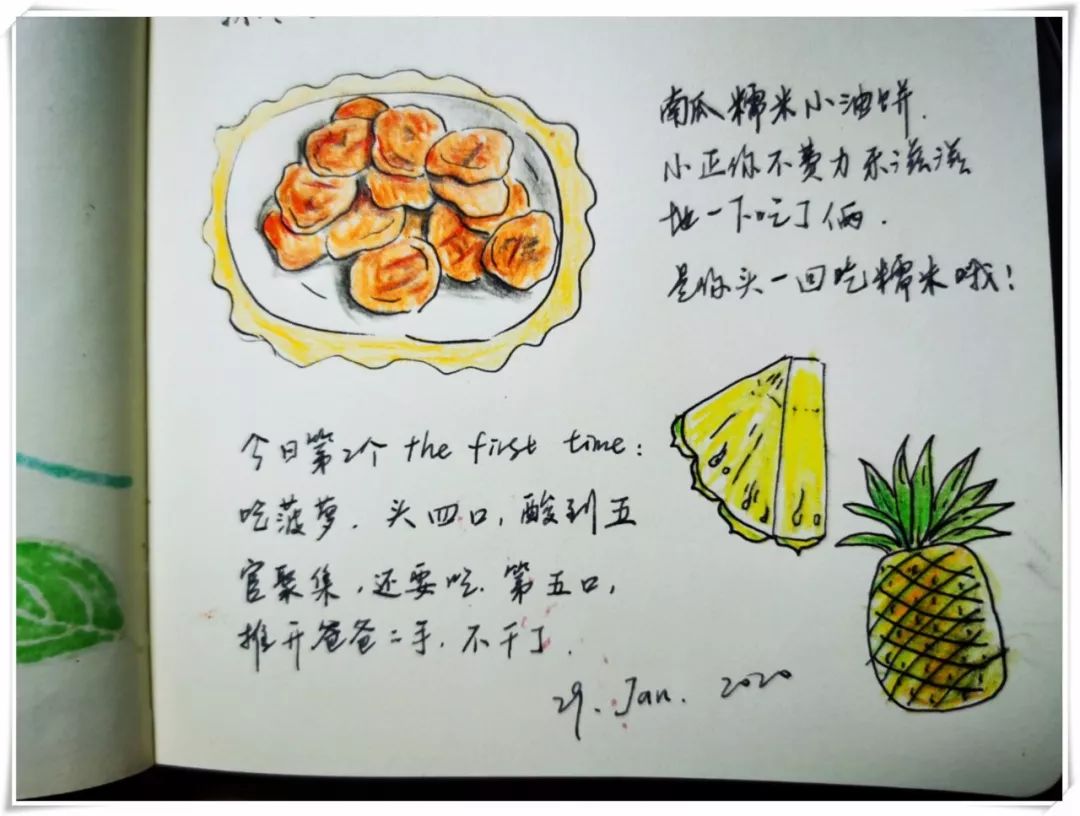 南瓜糯米小油饼.
小正你不费力乐滋滋
地一下吃了俩.
是你头一回吃糯米哦!
今日第2个 the first time:
吃菠萝. 头四口,酸到五
官聚集,还要吃. 第五口,
推开爸爸二手.不干了.
29. Jan. 2020